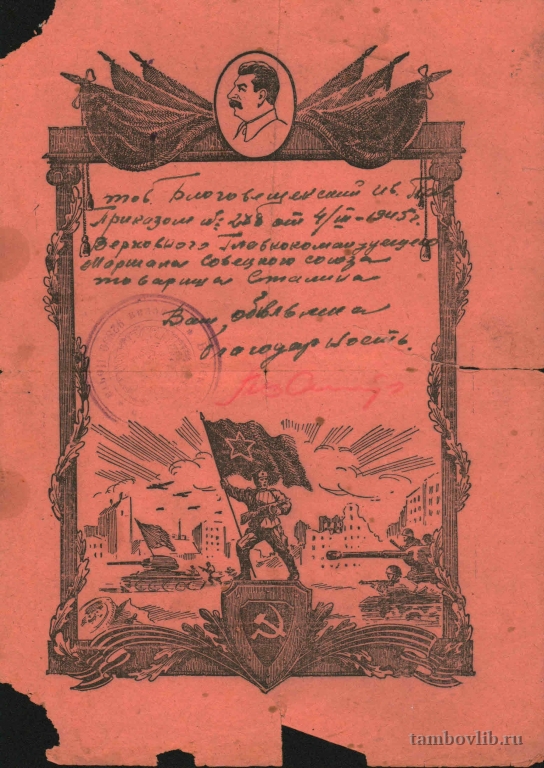 тов. Благовещенский Ив. Пав
Приказом № 288 от 4/III-1945 г.
Верховного Главнокомандующего
Маршала Совецкого союза
товарища Сталина
Вам объявлена
благодарность.
tambovlib.ru